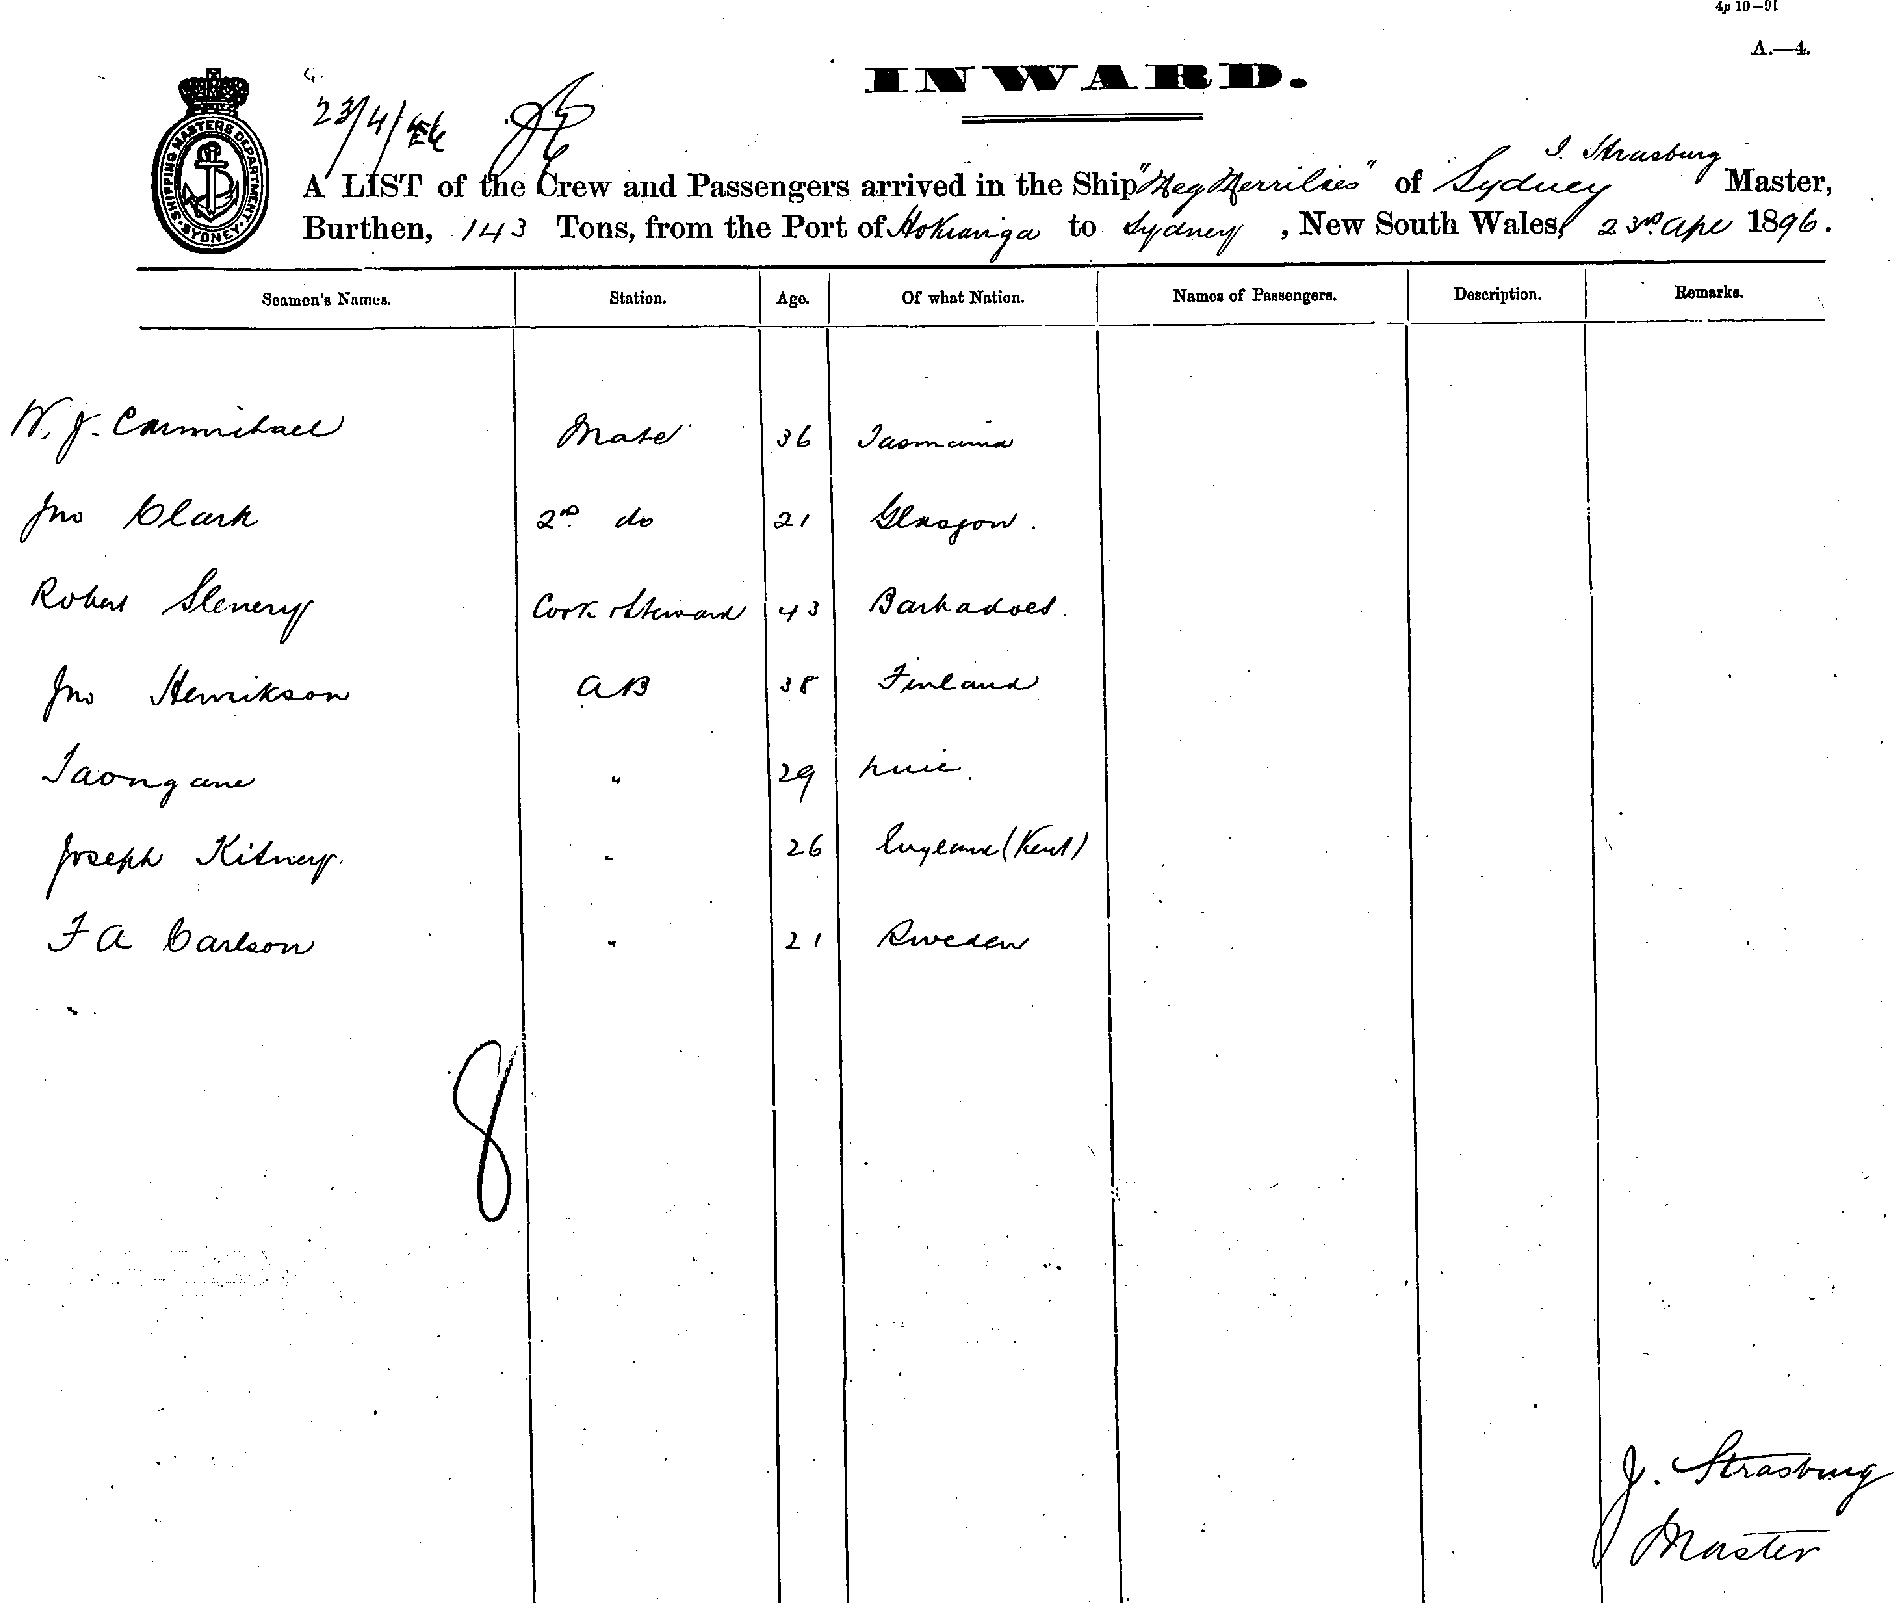 4p 10—91
A.—4.
INWARD.
23/4/96
SHIPPING MASTERS DEPARTMENT SYDNEY
J. Strasburg
A LIST of the Crew and Passengers arrived in the Ship "Meg Merrilies" of Sydney Master,
Burthen, 143 Tons, from the Port of Hokianga to Sydney, New South Wales, 23rd Apl 1896.
Seamen's Names. Station. Age. Of what Nation. Names of Passengers. Description. Remarks.
W. J. Carmichael Mate 36 Tasmania
Jno Clark 2nd do 21 Glasgow.
Robert Slenery Cook & Steward 43 Barbadoes.
Jno Henrikson AB 38 Finland
Taongane " 29 Nuie.
Joseph Kitney. " 26 England (Kent)
F A Carlson " 21 Sweden
8
J. Strasburg
Master